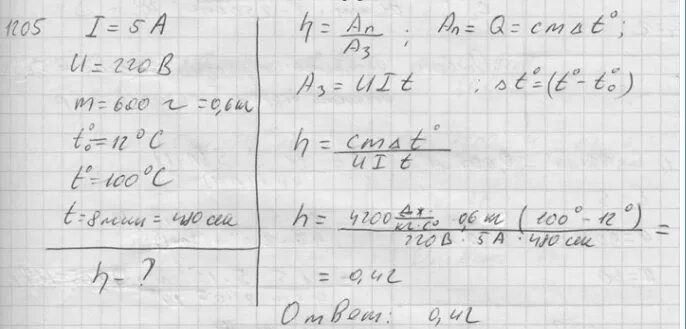 1205 I = 5 А
U = 220 В
m = 600 г = 0,6 кг
t₀° = 12°C
t° = 100°C
t = 8 мин = 480 сек
η - ?
η = Aп / Aз ; Aп = Q = cmΔt°;
Aз = UIt ; Δt° = (t° - t₀°)
η = cmΔt° / UIt
η = 4200 Дж / кг·C° · 0,6 кг (100° - 12°) / 220 В · 5 А · 480 сек =
= 0,42
Ответ: 0,42